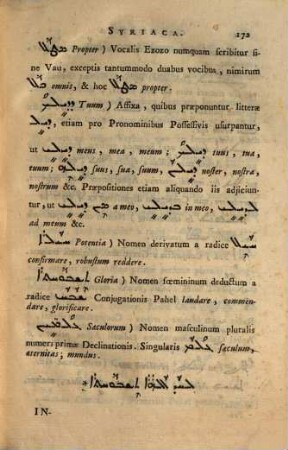 SYRIACA. 172
ܡܛܠ Propter) Vocalis Ezozo numquam scribitur si-
ne Vau, exceptis tantummodo duabus vocibus, nimirum
ܟܠ omnis, & hoc ܡܛܠ propter.
ܕܝܠܟ Tuum) Affixa, quibus præponuntur litteræ
ܕܝܠ, etiam pro Pronominibus Possessivis usurpantur,
ut ܕܝܠܝ meus, mea, meum; ܕܝܠܟ tuus, tua,
tuum; ܕܝܠܗ suus, sua, suum, ܕܝܠܢ noster, nostra,
nostrum &c. Præpositiones etiam aliquando iis adjiciun-
tur, ut ܡܢ ܕܝܠܝ a meo, ܒܕܝܠܝ in meo, ܠܕܝܠܝ
ad meum &c.
ܚܝܠܐ Potentia) Nomen derivatum a radice ܚܝܠ
confirmare, robustum reddere.
ܬܫܒܘܚܬܐ Gloria) Nomen fœmininum deductum a
radice ܫܒܚ Conjugationis Pahel laudare, commen-
dare, glorificare.
ܥܠܡܝܢ Sæculorum) Nomen masculinum pluralis
numeri primæ Declinationis. Singularis ܥܠܡ sæculum,
æternitas; mundus.
ܠܚܕ ܐܠܗܐ ܬܫܒܘܚܬܐ
IN-